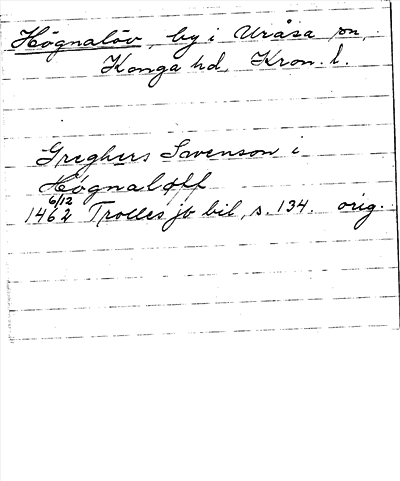 Högnalöv, by i Uråsa sn,
Konga hd, Kron. l.
Greghers Swenson i
Høgnaløff
6/12
1462 Trolles jb bil, s. 134. orig.